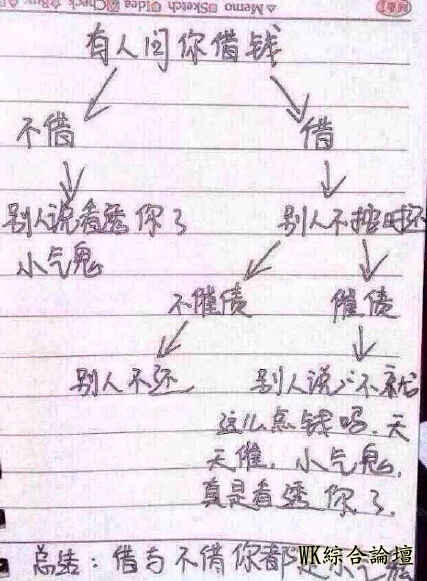 △Memo □Sketch □Idea □Check □Buy
有人问你借钱
不借 借
别人说看透你了 别人不按时还
小气鬼
不催债 催债
别人不还 别人说:不就
这么点钱吗,天
天催,小气鬼,
真是看透你了.
总结:借与不借你都是小气鬼
WK綜合論壇